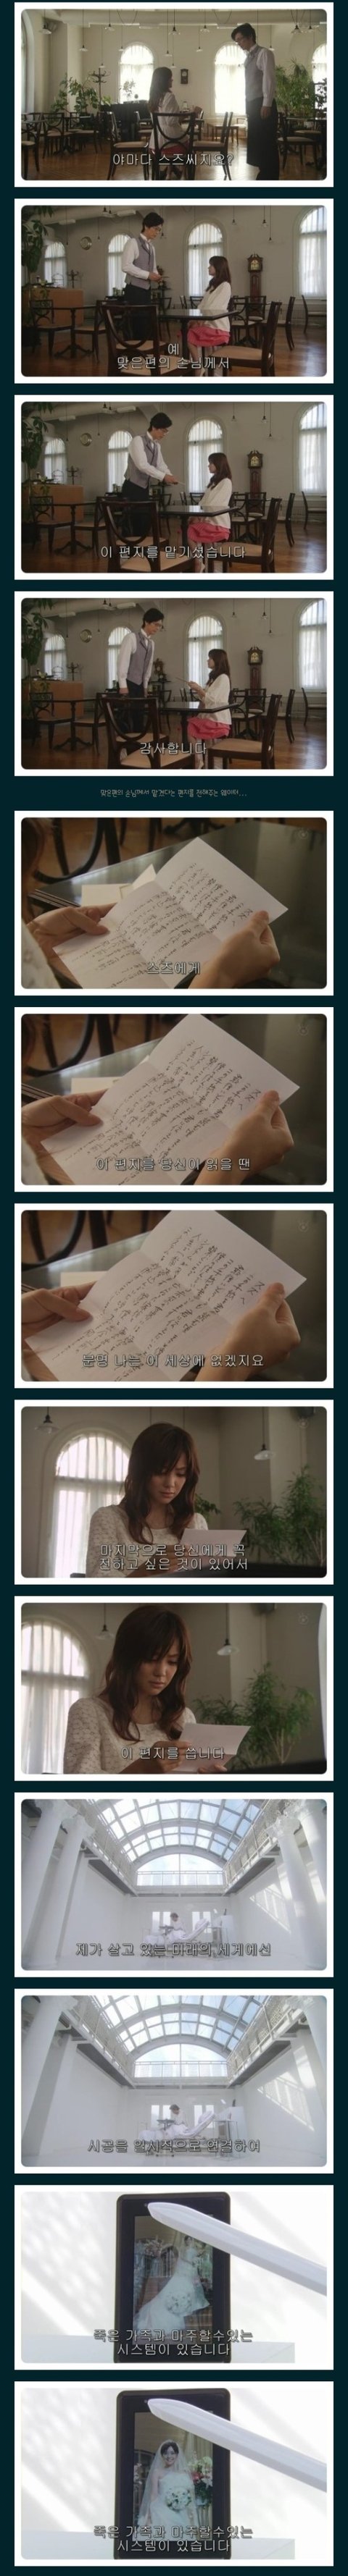 야마다 스즈씨지요?
예
맞은편의 손님께서
이 편지를 맡기셨습니다
감사합니다
맞은편의 손님께서 맡겼다는 편지를 전해주는 웨이터...
스즈에게
이 편지를 당신이 읽을 땐
분명 나는 이 세상에 없겠지요
마지막으로 당신에게 꼭
전하고 싶은 것이 있어서
이 편지를 씁니다
제가 살고 있는 미래의 세계에선
시공을 일시적으로 연결하여
죽은 가족과 마주할수있는
시스템이 있습니다
죽은 가족과 마주할수있는
시스템이 있습니다